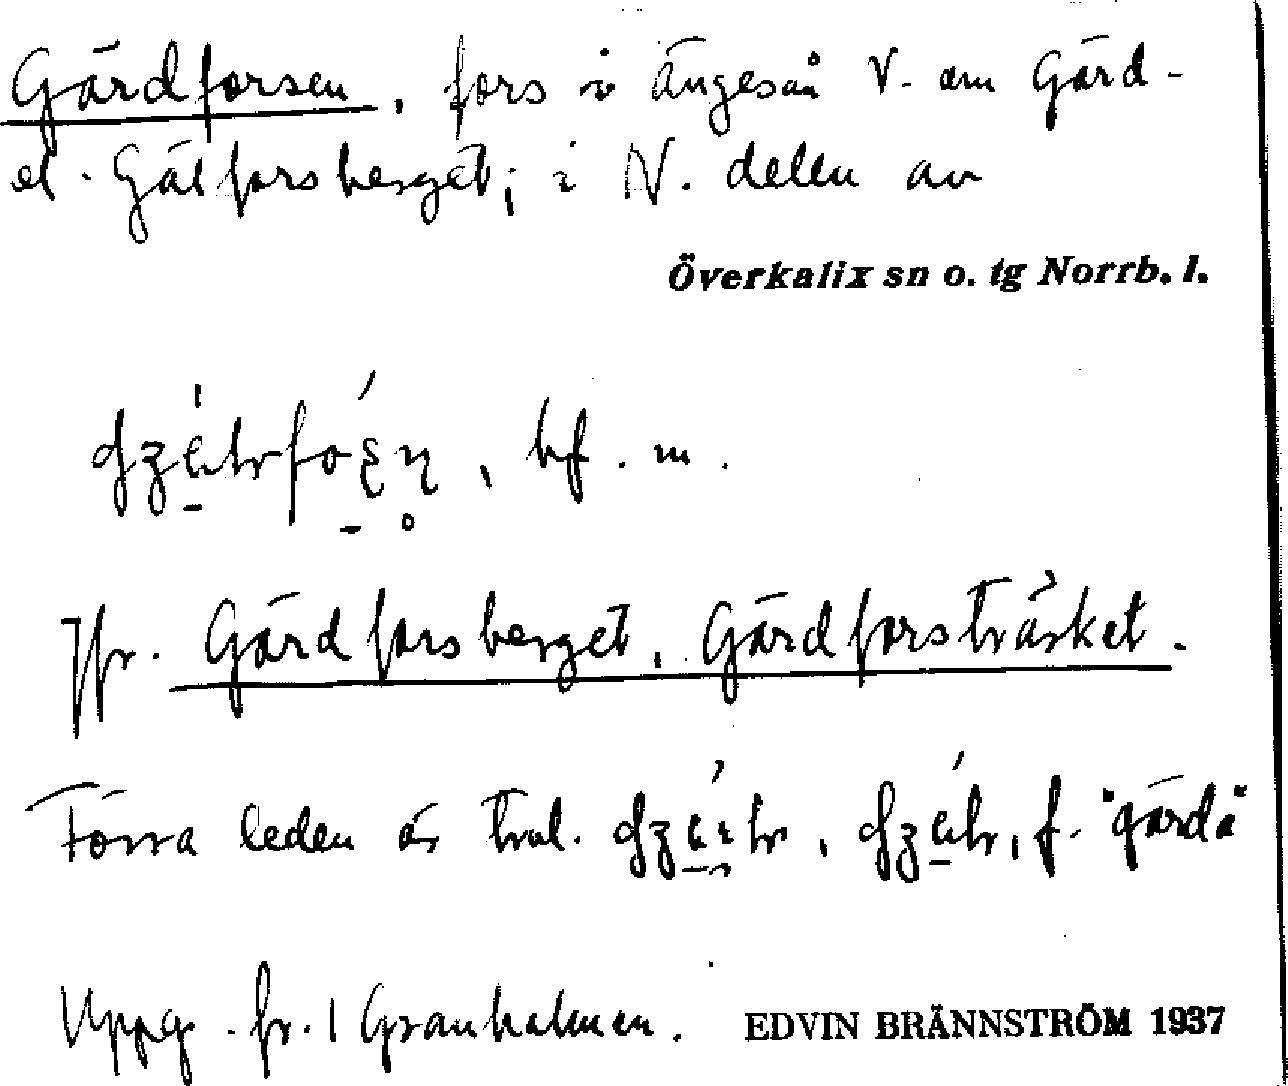 Gärdforsen, fors i Ängesån V. om Gärd-
el. Gätforsberget; i N. delen av
Överkalix sn o. tg Norrb. l.
, bf. m.
Jfr. Gärdforsberget, Gärdforsträsket.
Förra leden är trol. , f. "gärda"
Uppg. fr. Granholmen. EDVIN BRÄNNSTRÖM 1937